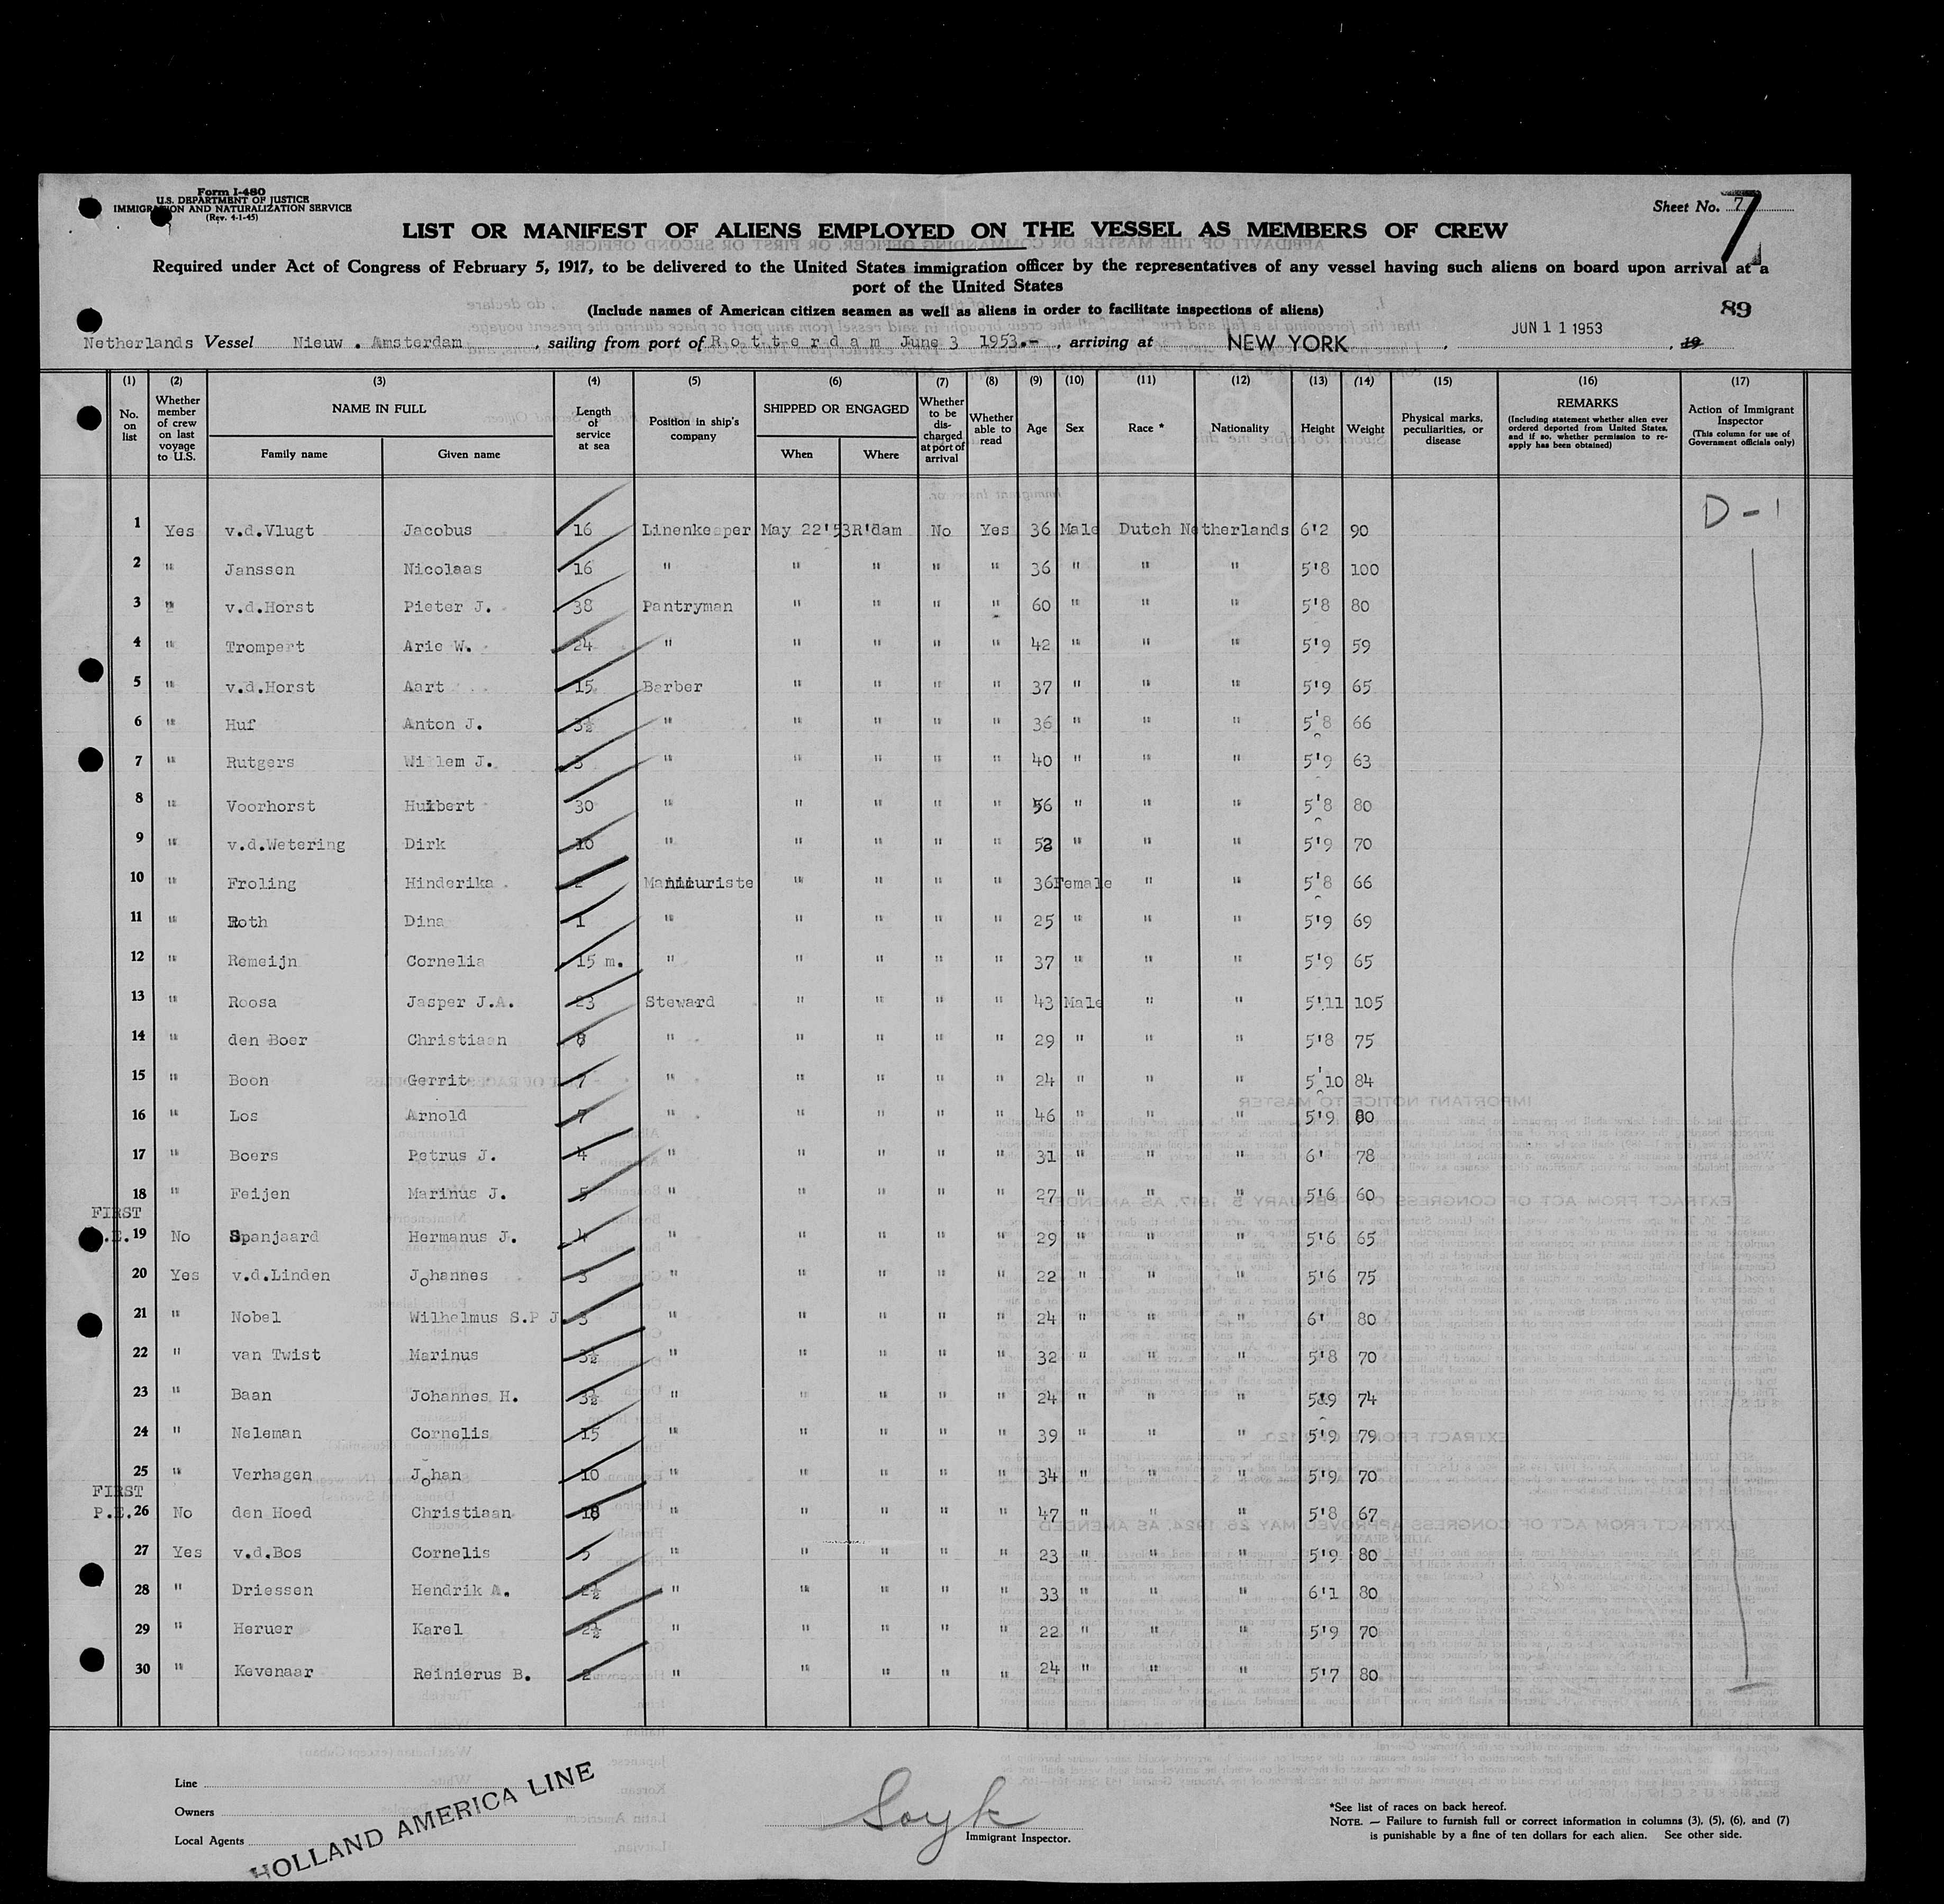 Form I-480
U.S. DEPARTMENT OF JUSTICE
IMMIGRATION AND NATURALIZATION SERVICE
(Rev. 4-1-45)
Sheet No. 7
7
LIST OR MANIFEST OF ALIENS EMPLOYED ON THE VESSEL AS MEMBERS OF CREW
Required under Act of Congress of February 5, 1917, to be delivered to the United States immigration officer by the representatives of any vessel having such aliens on board upon arrival at a
port of the United States
(Include names of American citizen seamen as well as aliens in order to facilitate inspections of aliens)
89
Netherlands Vessel Nieuw . Amsterdam , sailing from port of Rotterdam June 3 1953.- , arriving at NEW YORK , JUN 11 1953 , 19
(1) (2) (3) (4) (5) (6) (7) (8) (9) (10) (11) (12) (13) (14) (15) (16) (17)
No. on list Whether member of crew on last voyage to U.S. NAME IN FULL Family name Given name Length of service at sea Position in ship's company SHIPPED OR ENGAGED When Where Whether to be discharged at port of arrival Whether able to read Age Sex Race * Nationality Height Weight Physical marks, peculiarities, or disease REMARKS (Including statement whether alien ever ordered deported from United States, and if so, whether permission to reapply has been obtained) Action of Immigrant Inspector (This column for use of Government officials only)
1 Yes v.d.Vlugt Jacobus 16 Linenkeeper May 22'53 R'dam No Yes 36 Male Dutch Netherlands 6'2 90 D-1
2 " Janssen Nicolaas 16 " " " " " 36 " " " 5'8 100
3 " v.d.Horst Pieter J. 38 Pantryman " " " " 60 " " " 5'8 80
4 " Trompert Arie W. 24 " " " " " 42 " " " 5'9 59
5 " v.d.Horst Aart 15 Barber " " " " 37 " " " 5'9 65
6 " Huf Anton J. 3½ " " " " " 36 " " " 5'8 66
7 " Rutgers Willem J. 3 " " " " " 40 " " " 5'9 63
8 " Voorhorst Huibert 30 " " " " " 56 " " " 5'8 80
9 " v.d.Wetering Dirk 10 " " " " " 52 " " " 5'9 70
10 " Froling Hinderika 2 Manicuriste " " " " 36 Female " " 5'8 66
11 " Roth Dina 1 " " " " " 25 " " " 5'9 69
12 " Remeijn Cornelia 15 m. " " " " " 37 " " " 5'9 65
13 " Roosa Jasper J.A. 23 Steward " " " " 43 Male " " 5'11 105
14 " den Boer Christiaan 8 " " " " " 29 " " " 5'8 75
15 " Boon Gerrit 7 " " " " " 24 " " " 5'10 84
16 " Los Arnold 7 " " " " " 46 " " " 5'9 80
17 " Boers Petrus J. 4 " " " " " 31 " " " 6' 78
18 " Feijen Marinus J. 5 " " " " " 27 " " " 5'6 60
FIRST
P.E. 19 No Spanjaard Hermanus J. 4 " " " " " 29 " " " 5'6 65
20 Yes v.d.Linden Johannes 3 " " " " " 22 " " " 5'6 75
21 " Nobel Wilhelmus S.P J. 3 " " " " " 24 " " " 6' 80
22 " van Twist Marinus 3½ " " " " " 32 " " " 5'8 70
23 " Baan Johannes H. 3½ " " " " " 24 " " " 5'9 74
24 " Neleman Cornelis 15 " " " " " 39 " " " 5'9 79
25 " Verhagen Johan 10 " " " " " 34 " " " 5'9 70
FIRST
P.E. 26 No den Hoed Christiaan 18 " " " " " 47 " " " 5'8 67
27 Yes v.d.Bos Cornelis 5 " " " " " 23 " " " 5'9 80
28 " Driessen Hendrik A. 2½ " " " " " 33 " " " 6'1 80
29 " Heruer Karel 2½ " " " " " 22 " " " 5'9 70
30 " Kevenaar Reinierus B. 2 " " " " " 24 " " " 5'7 80
Line
Owners
Local Agents
HOLLAND AMERICA LINE
Immigrant Inspector.
*See list of races on back hereof.
NOTE. — Failure to furnish full or correct information in columns (3), (5), (6), and (7)
is punishable by a fine of ten dollars for each alien. See other side.